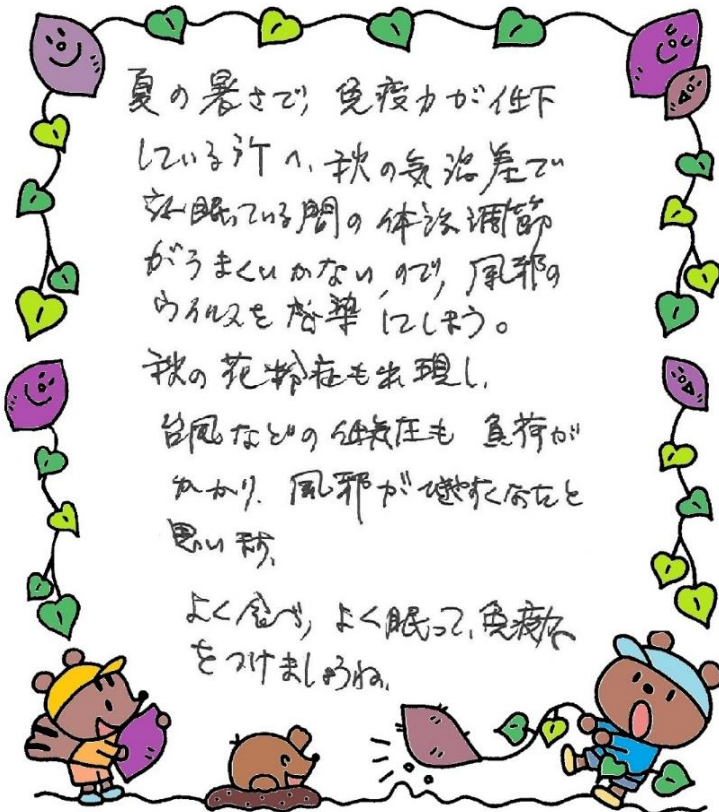 夏の暑さで、免疫力が低下
している所へ、秋の気温差で
眠っている間の体温調節
がうまくいかない、ので、風邪の
ウイルスを感染にしまう。
秋の花粉症も出現し、
台風などの低気圧も負荷が
かかり、風邪がひきやすくなたと
思います。
よく食べ、よく眠って、免疫力
をつけましょうね。